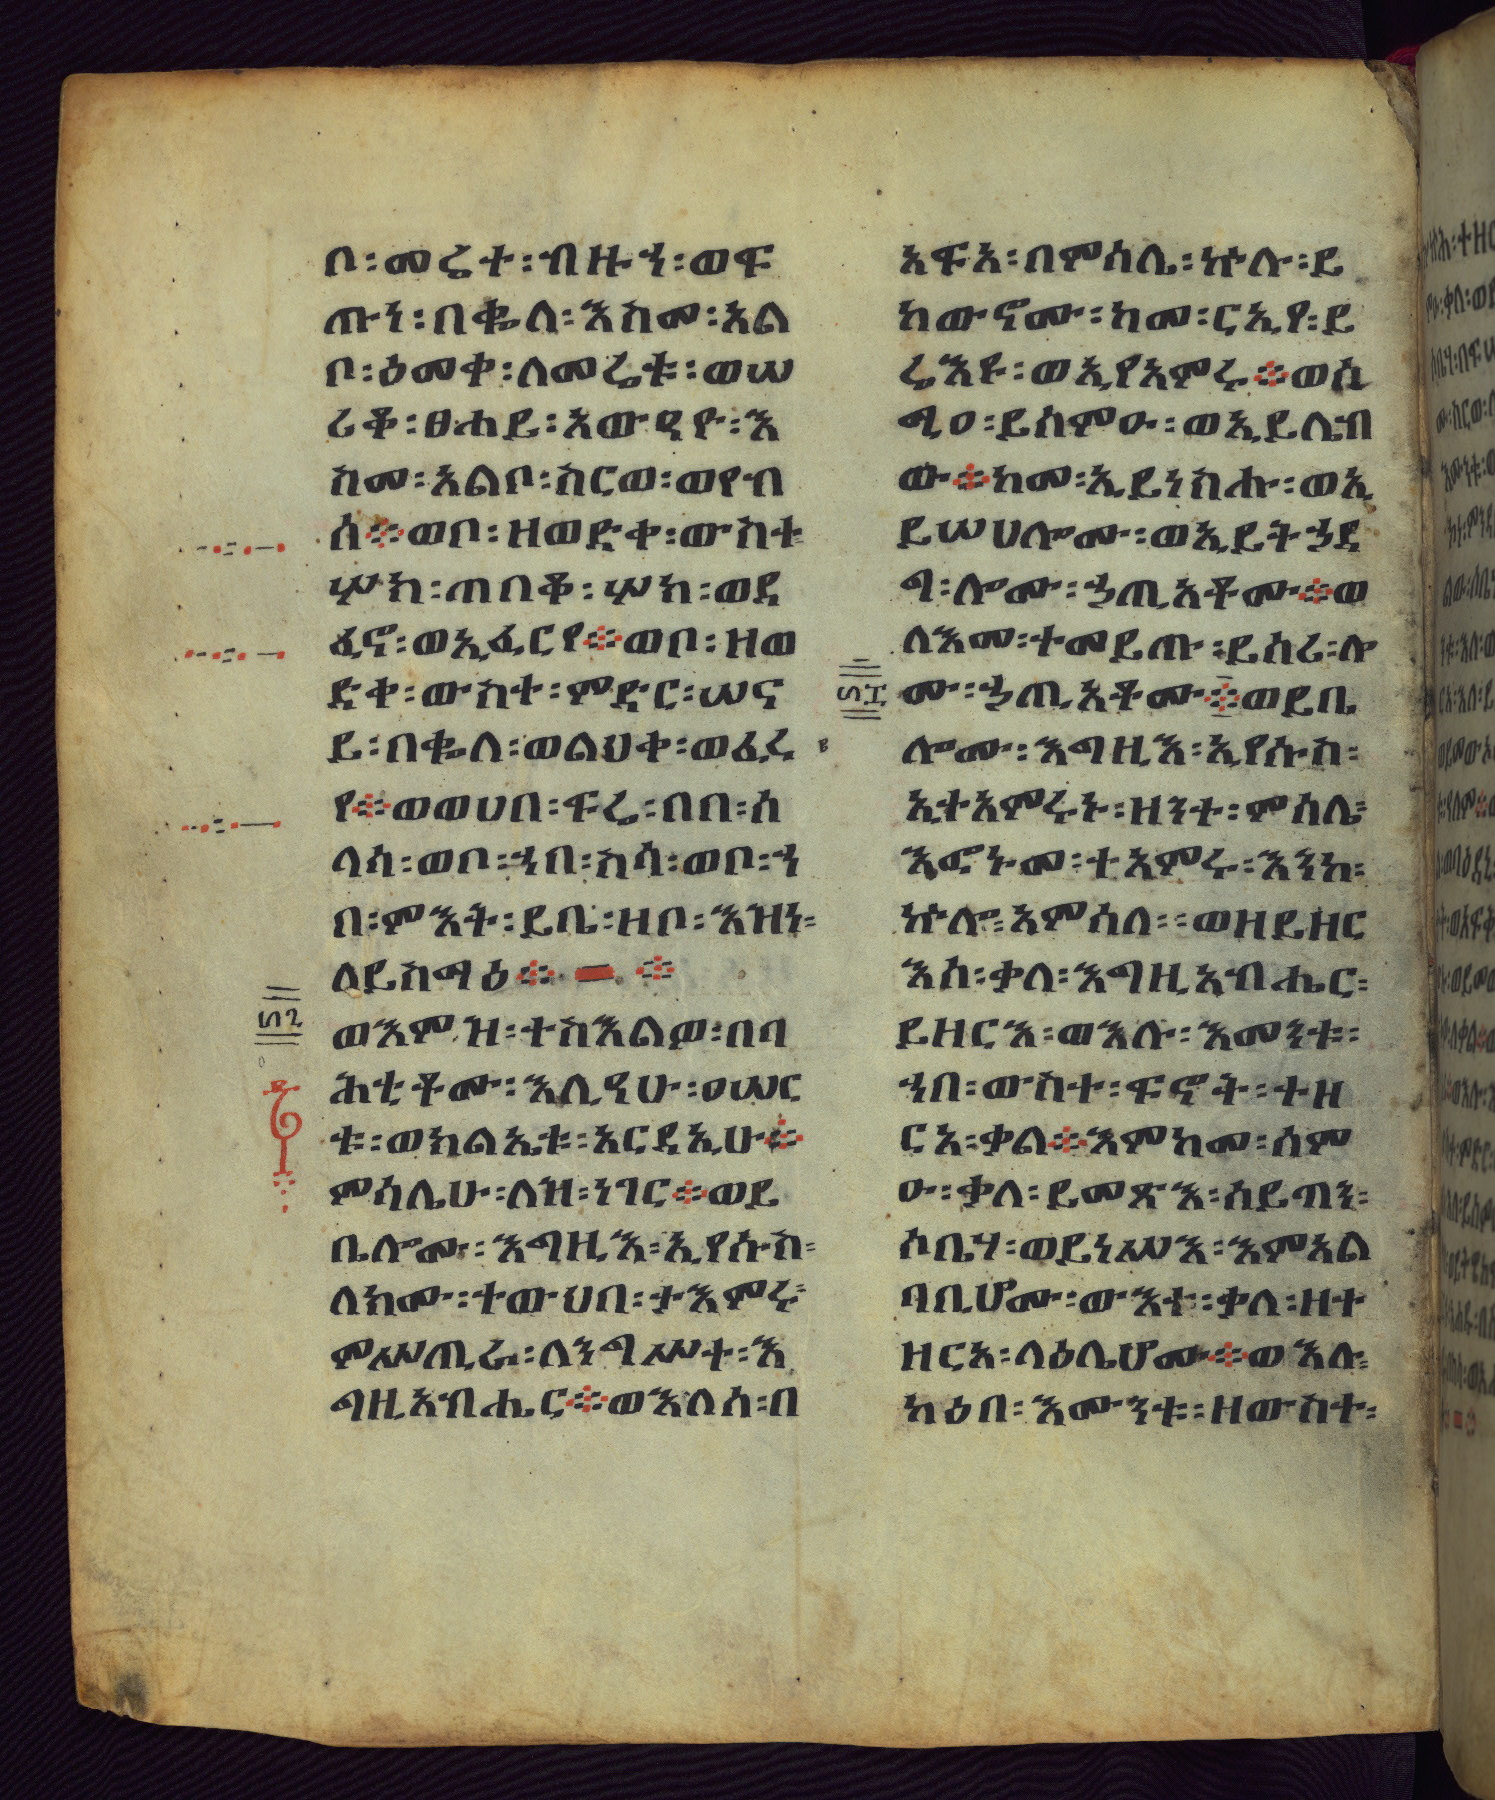 ቦ፡መሬተ፡ብዙኀ፡ወፍ
ጡነ፡በቈለ፡እስመ፡አል
ቦ፡ዕመቀ፡ለመሬቱ፡ወሠ
ሪቆ፡ፀሐይ፡አውዓዮ፡እ
ስመ፡አልቦ፡ስርወ፡ወየብ
ሰ፨ወቦ፡ዘወድቀ፡ውስተ፡
ሦክ፡ጠበቆ፡ሦክ፡ወዳ
ፈኖ፡ወኢፈርየ፨ወቦ፡ዘወ
ድቀ፡ውስተ፡ምድር፡ሠና
ይ፡በቈለ፡ወልህቀ፡ወፈረ
የ፨ወወሀበ፡ፍሬ፡በበ፡ሰ
ላሳ፡ወቦ፡ኀበ፡ስሳ፡ወቦ፡ኀ
በ፡ምእት፡ይቤ፡ዘቦ፡እዝነ፡
ለይስማዕ፨ ፨
፶፯
ወእምዝ፡ተስእልዎ፡በባ
ሕቲቶሙ፡እሊዓሁ፡፲ወ፪
ቱ፡ወካልኢቱ፡አርዳኢሁ፨
ምሳሌሁ፡ለዝ፡ነገር፨ወይ
ቤሎሙ፡እግዚእ፡ኢየሱስ፡
ለክሙ፡ተውህበ፡ታእምሩ፡
ምሥጢራ፡ለንግሥተ፡እ
ግዚአብሔር፨ወእለሰ፡በ
አፍአ፡በምሳሌ፡ኵሉ፡ይ
ከውኖሙ፡ከመ፡ርኢየ፡ይ
ሬእዩ፡ወኢየአምሩ፨ወሰ
ሚዐ፡ይሰምዑ፡ወኢይሌብ
ው፨ከመ፡ኢይነስሑ፡ወኢ
ይሠሀሎሙ፡ወኢይትኃደ
ግ፡ሎሙ፡ኃጢአቶሙ፨ወ
ለእመ፡ተመይጡ፡ይሰሪ፡ሎ
ሙ፡ኃጢአቶሙ፨ወይቤ
ሎሙ፡እግዚእ፡ኢየሱስ፡
ኢተአምሩኑ፡ዘንተ፡ምሳሌ፡
እፎኑመ፡ተአምሩ፡እንከ፡
ኵሎ፡አምሳለ፡፡ወዘይዘር
እሰ፡ቃለ፡እግዚአብሔር፡
ይዘርእ፡ወእሉ፡እመንቱ፡
ኀበ፡ውስተ፡ፍኖት፡ተዘ
ርአ፡ቃል፨እምከመ፡ሰም
ዑ፡ቃለ፡ይመጽእ፡ሰይጣን፡
ሶቤሃ፡ወይነሥእ፡እምአል
ባቢሆሙ፡ውእተ፡ቃለ፡ዘተ
ዘርአ፡ላዕሌሆሙ፨ወእሉ፡
ካዕበ፡እሙንቱ፡ዘውስተ፡